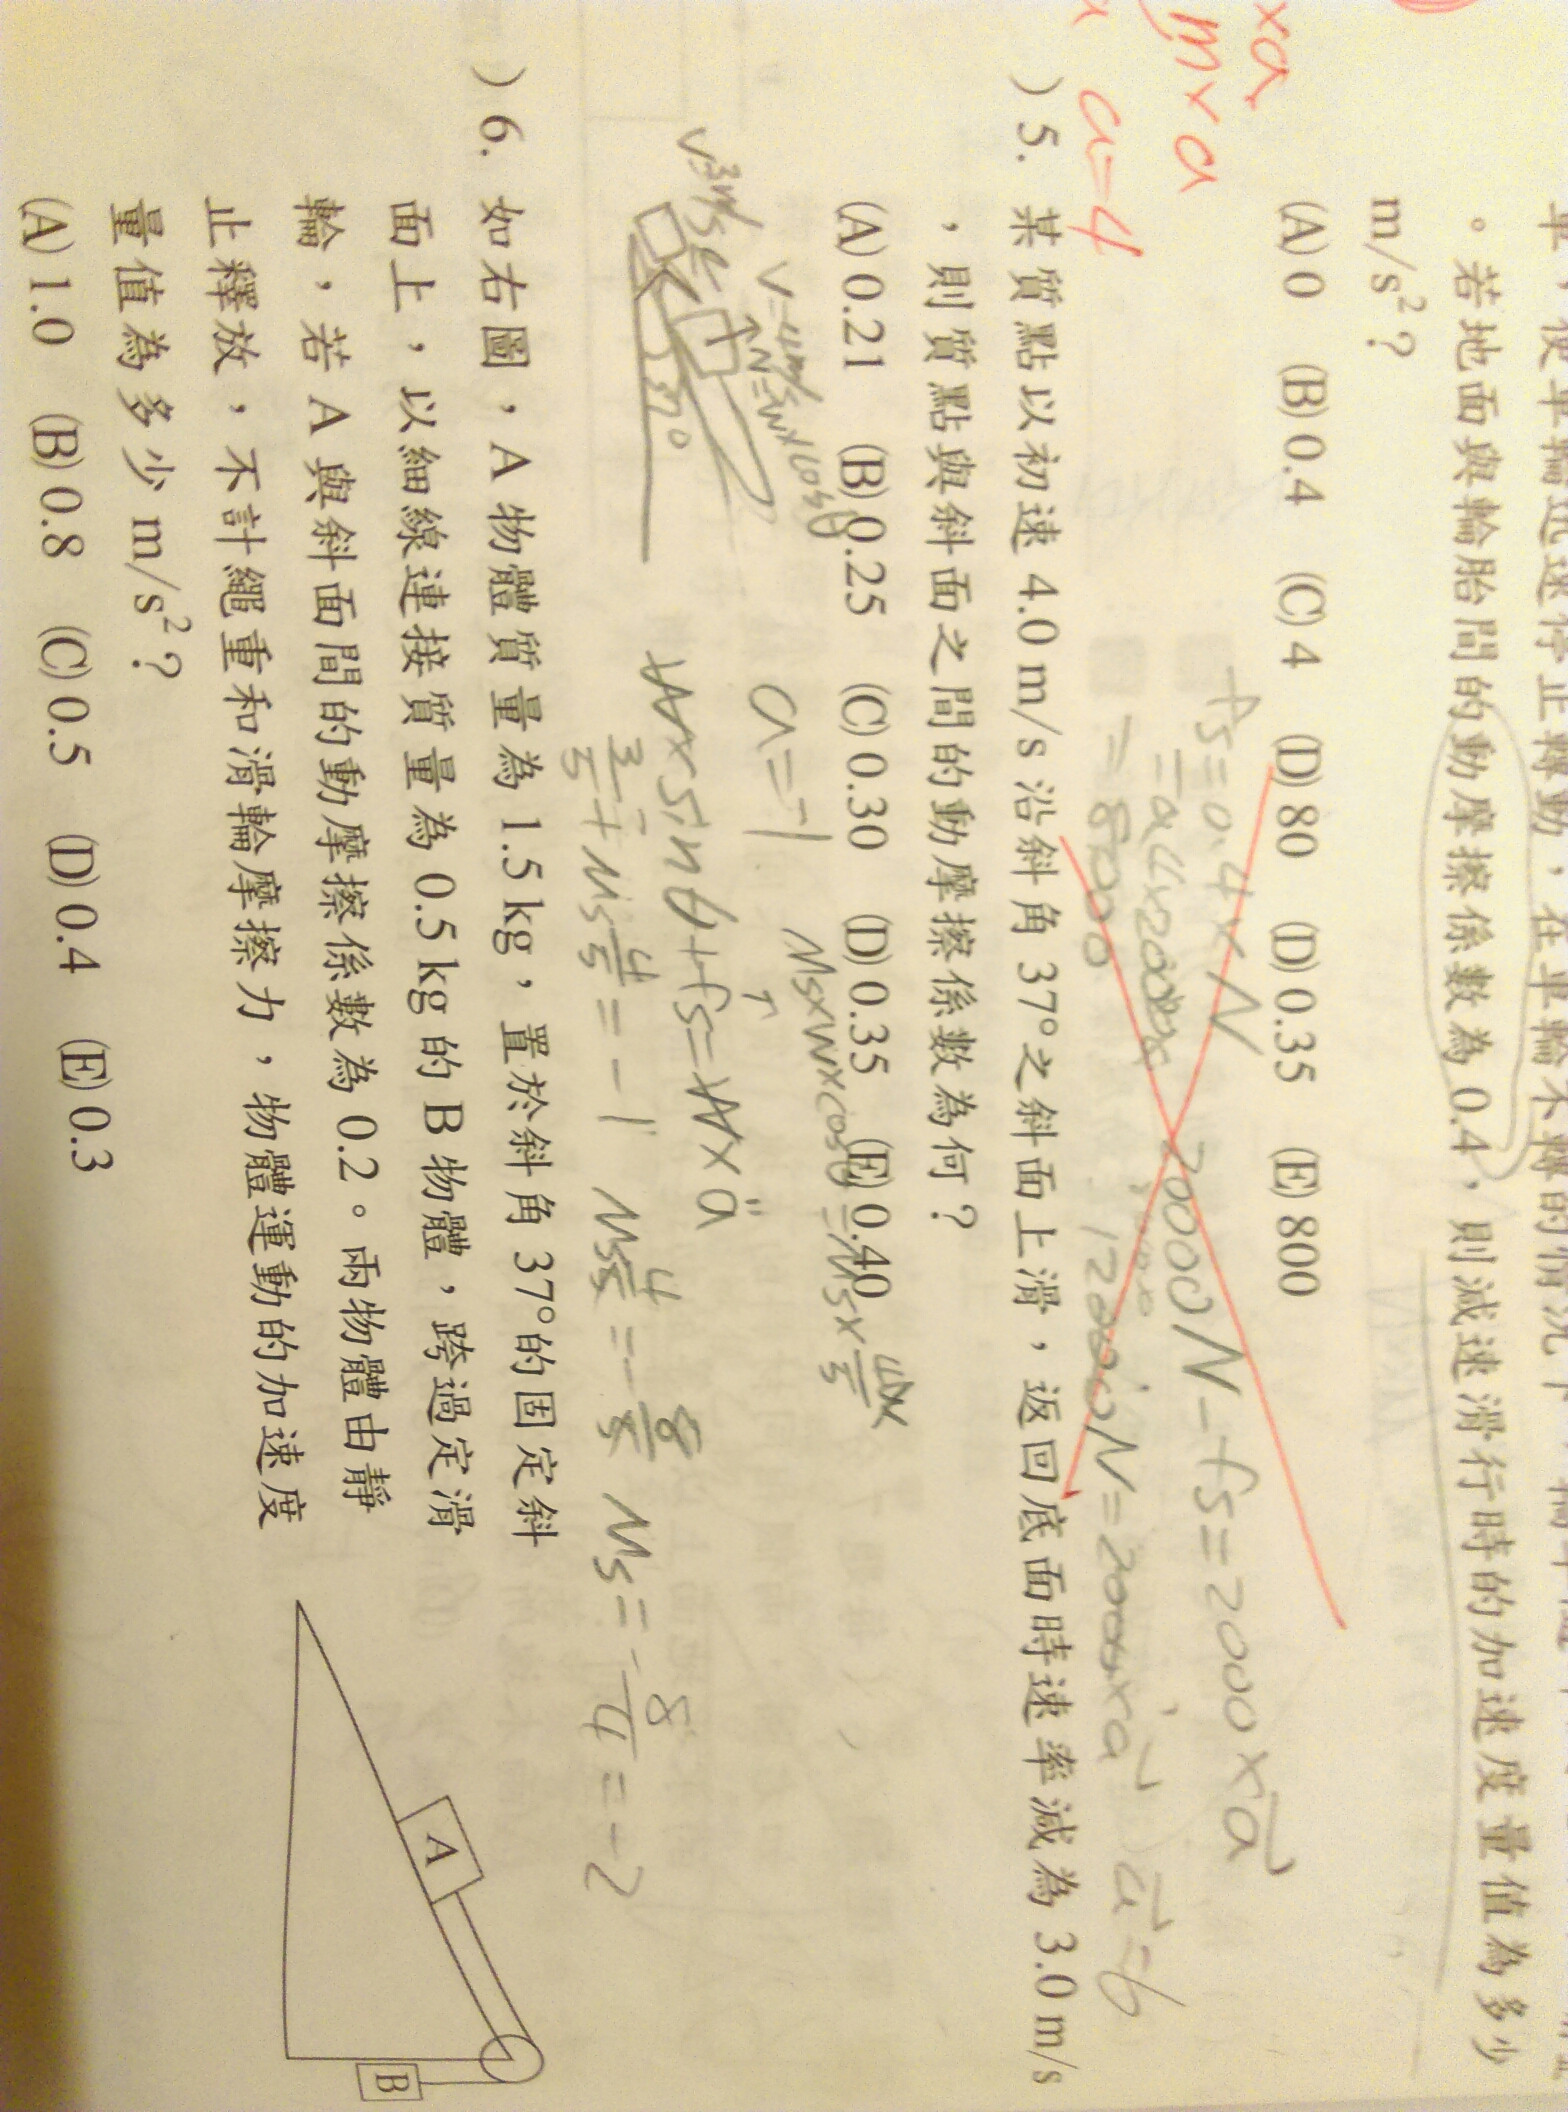 。若地面與輪胎間的動摩擦係數為 0.4,則減速滑行時的加速度量值為多少
m/s²?
(A) 0 (B) 0.4 (C) 4 (D) 80 (D) 0.35 (E) 800
xa
mxa
a=4
fs=0.4×N
=8000
20000N-fs=2000×a
12000N=2000×a
a=6
)5. 某質點以初速 4.0 m/s 沿斜角 37°之斜面上滑,返回底面時速率減為 3.0 m/s
,則質點與斜面之間的動摩擦係數為何?
(A) 0.21 (B) 0.25 (C) 0.30 (D) 0.35 (E) 0.40
V=3m/s
V=4m/s
N=W×cosθ
37°
a=-1
Ms×W×cosθ=Ms×4/5
W×sinθ+fs=W×a
3/5+Ms4/5=-1 Ms4/5=-8/5 Ms=-8/4=-2
)6. 如右圖,A 物體質量為 1.5 kg,置於斜角 37°的固定斜
面上,以細線連接質量為 0.5 kg 的 B 物體,跨過定滑
輪,若 A 與斜面間的動摩擦係數為 0.2。兩物體由靜
止釋放,不計繩重和滑輪摩擦力,物體運動的加速度
量值為多少 m/s²?
(A) 1.0 (B) 0.8 (C) 0.5 (D) 0.4 (E) 0.3
A
B